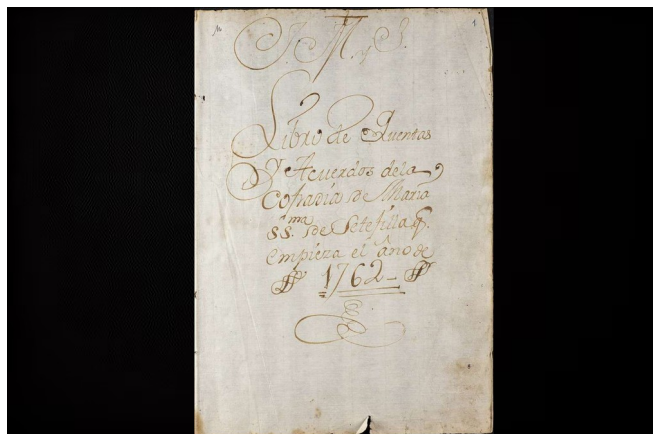 1
J. M. y J.
Libro de Quentas
Y Acuerdos dela
Cofradia de Maria
SS.ma de Setefilla q.
empieza el año de
1762